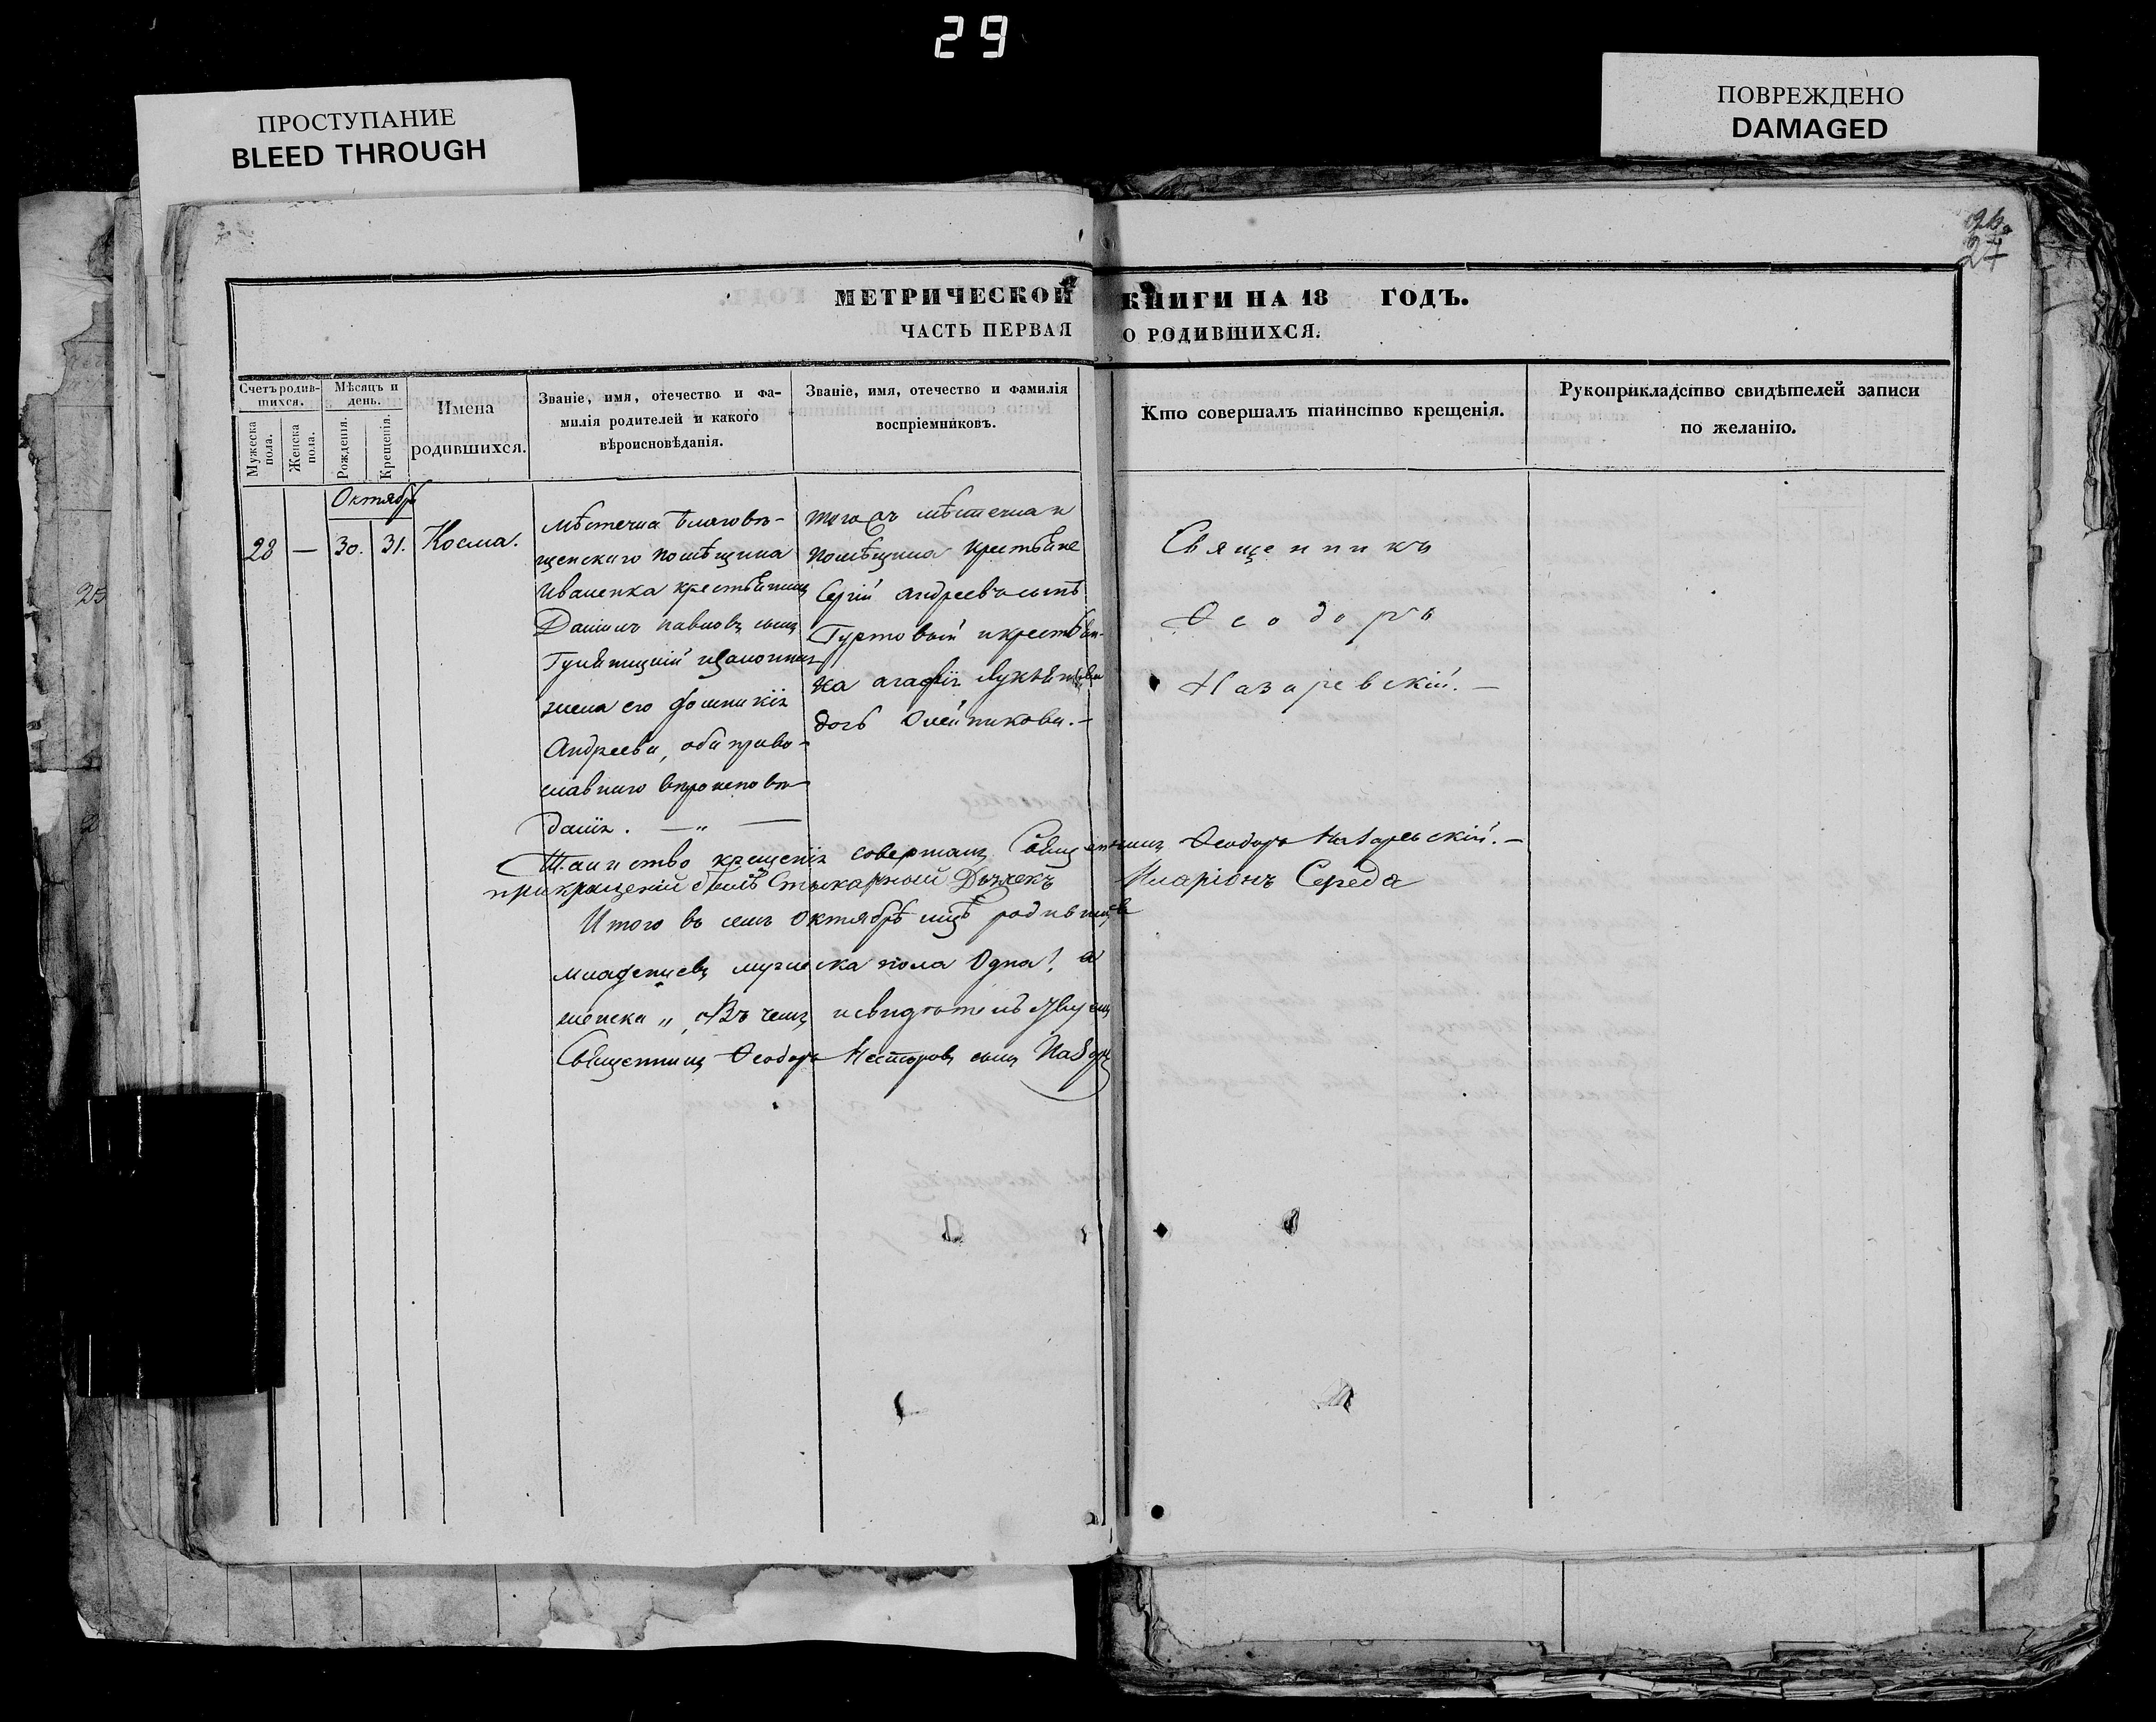 29
ПРОСТУПАНИЕ
BLEED THROUGH
ПОВРЕЖДЕНО
DAMAGED
27
25
МЕТРИЧЕСКОЙ КНИГИ НА 18 ГОДЪ.
ЧАСТЬ ПЕРВАЯ О РОДИВШИХСЯ.
Счетъ родив-
шихся.
Мужеска
пола.
Женска
пола.
Мѣсяцъ и
день.
Рожденія.
Крещенія.
Имена
родившихся.
Званіе, имя, отечество и фа-
милія родителей и какого
вѣроисповѣданія.
Званіе, имя, отечество и фамилія
воспріемниковъ.
Кто совершалъ таинство крещенія.
Рукоприкладство свидѣтелей записи
по желанію.
Октябрь
28 — 30. 31. Косма.
Мѣстечка Благовѣ-
щенскаго помѣщика
Иваненка крестьянинъ
Даніилъ Павловъ сынъ
законная
жена его
Андреева, оба право-
славнаго вѣроисповѣ-
данія. — „ —
того жъ мѣстечка и
помѣщика крестьяне
Сергій Андреевъ сынъ
Гуртовый и крестьян-
ка Агафія
дочь Олейникова. —
Священникъ
Ѳеодоръ
Назаревскій. —
Таинство крещенія совершалъ Священникъ Ѳеодоръ Назаревскій. —
при крещеніи былъ Дьячекъ Иларіонъ Середа
Итого въ семъ Октябрѣ мцѣ родившихся
младенцевъ мужеска пола Одна 1, а
женска „ Въ чемъ и свидѣтельствуемъ
Священникъ Ѳеодоръ Несторовъ сынъ